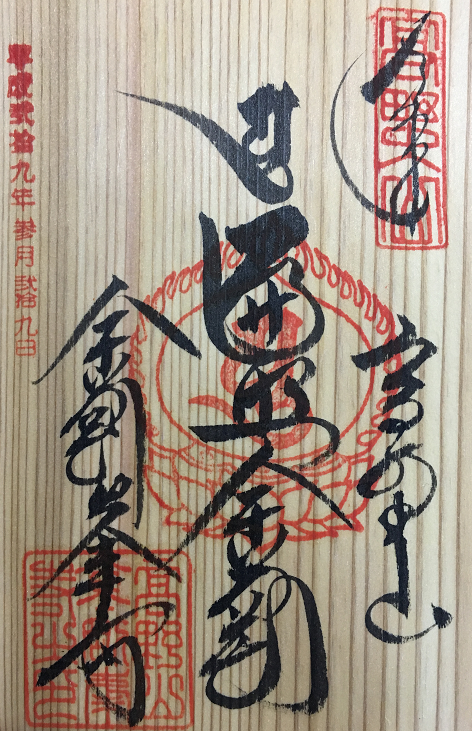 高野山
奉拝
高野山
遍照金剛
金剛峯寺
平成弐拾九年 参月 弐拾九日